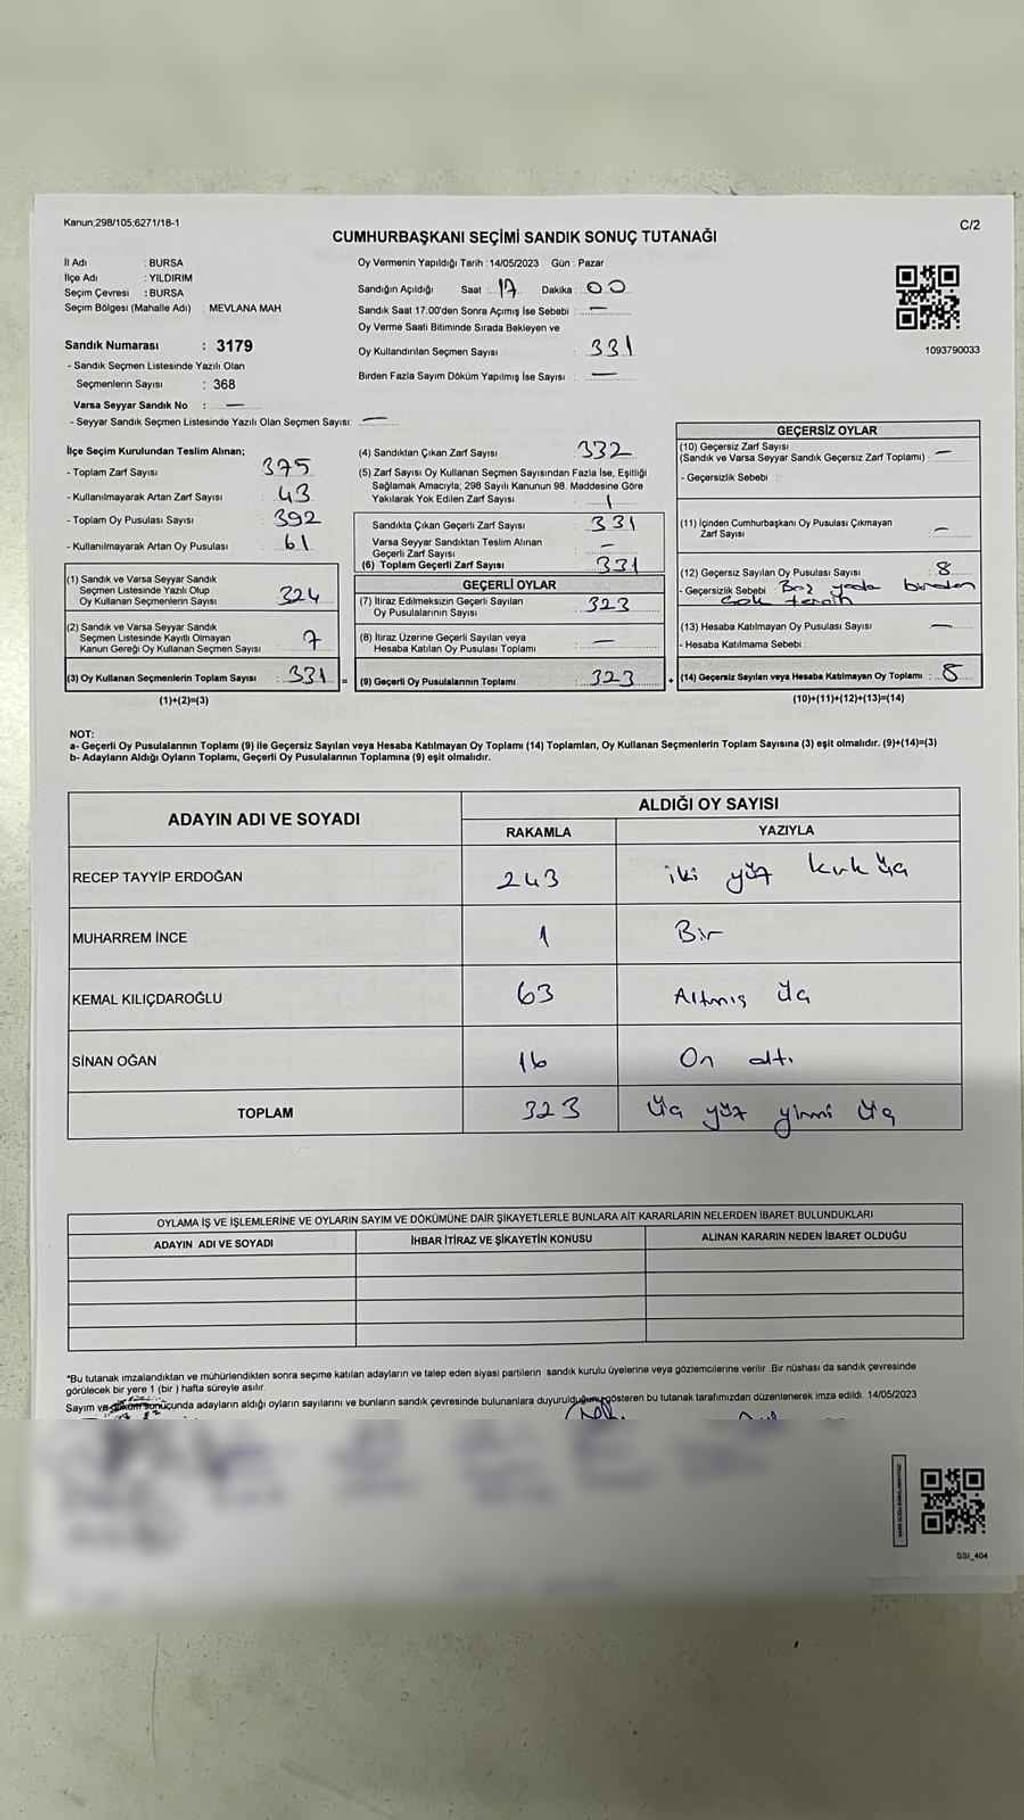 Kanun;298/105;6271/18-1
C/2
CUMHURBAŞKANI SEÇİMİ SANDIK SONUÇ TUTANAĞI
İl Adı : BURSA
İlçe Adı : YILDIRIM
Seçim Çevresi : BURSA
Seçim Bölgesi (Mahalle Adı) : MEVLANA MAH
Sandık Numarası : 3179
- Sandık Seçmen Listesinde Yazılı Olan
Seçmenlerin Sayısı : 368
Varsa Seyyar Sandık No : —
- Seyyar Sandık Seçmen Listesinde Yazılı Olan Seçmen Sayısı: —
Oy Vermenin Yapıldığı Tarih : 14/05/2023 Gün : Pazar
Sandığın Açıldığı Saat : 17 Dakika : 00
Sandık Saat 17:00'den Sonra Açımış İse Sebebi : —
Oy Verme Saati Bitiminde Sırada Bekleyen ve
Oy Kullandırılan Seçmen Sayısı : 331
Birden Fazla Sayım Döküm Yapılmış İse Sayısı : —
1093790033
İlçe Seçim Kurulundan Teslim Alınan;
- Toplam Zarf Sayısı : 375
- Kullanılmayarak Artan Zarf Sayısı : 43
- Toplam Oy Pusulası Sayısı : 392
- Kullanılmayarak Artan Oy Pusulası : 61
(1) Sandık ve Varsa Seyyar Sandık
Seçmen Listesinde Yazılı Olup
Oy Kullanan Seçmenlerin Sayısı : 324
(2) Sandık ve Varsa Seyyar Sandık
Seçmen Listesinde Kayıtlı Olmayan
Kanun Gereği Oy Kullanan Seçmen Sayısı : 7
(3) Oy Kullanan Seçmenlerin Toplam Sayısı : 331 =
(1)+(2)=(3)
(4) Sandıktan Çıkan Zarf Sayısı : 332
(5) Zarf Sayısı Oy Kullanan Seçmen Sayısından Fazla İse, Eşitliği
Sağlamak Amacıyla; 298 Sayılı Kanunun 98. Maddesine Göre
Yakılarak Yok Edilen Zarf Sayısı : 1
Sandıkta Çıkan Geçerli Zarf Sayısı : 331
Varsa Seyyar Sandıktan Teslim Alınan
Geçerli Zarf Sayısı : —
(6) Toplam Geçerli Zarf Sayısı : 331
GEÇERLİ OYLAR
(7) İtiraz Edilmeksizin Geçerli Sayılan
Oy Pusulalarının Sayısı : 323
(8) İtiraz Üzerine Geçerli Sayılan veya
Hesaba Katılan Oy Pusulası Toplamı : —
(9) Geçerli Oy Pusulalarının Toplamı : 323 +
GEÇERSİZ OYLAR
(10) Geçersiz Zarf Sayısı
(Sandık ve Varsa Seyyar Sandık Geçersiz Zarf Toplamı) : —
- Geçersizlik Sebebi :
(11) İçinden Cumhurbaşkanı Oy Pusulası Çıkmayan
Zarf Sayısı : —
(12) Geçersiz Sayılan Oy Pusulası Sayısı : 8
- Geçersizlik Sebebi : Boş yada birden
çok tercih
(13) Hesaba Katılmayan Oy Pusulası Sayısı : —
- Hesaba Katılmama Sebebi :
(14) Geçersiz Sayılan veya Hesaba Katılmayan Oy Toplamı : 8
(10)+(11)+(12)+(13)=(14)
NOT:
a- Geçerli Oy Pusulalarının Toplamı (9) ile Geçersiz Sayılan veya Hesaba Katılmayan Oy Toplamı (14) Toplamları, Oy Kullanan Seçmenlerin Toplam Sayısına (3) eşit olmalıdır. (9)+(14)=(3)
b- Adayların Aldığı Oyların Toplamı, Geçerli Oy Pusulalarının Toplamına (9) eşit olmalıdır.
ADAYIN ADI VE SOYADI
ALDIĞI OY SAYISI
RAKAMLA YAZIYLA
RECEP TAYYİP ERDOĞAN 243 iki yüz kırk üç
MUHARREM İNCE 1 Bir
KEMAL KILIÇDAROĞLU 63 Altmış üç
SİNAN OĞAN 16 On altı
TOPLAM 323 üç yüz yirmi üç
OYLAMA İŞ VE İŞLEMLERİNE VE OYLARIN SAYIM VE DÖKÜMÜNE DAİR ŞİKAYETLERLE BUNLARA AİT KARARLARIN NELERDEN İBARET BULUNDUKLARI
ADAYIN ADI VE SOYADI İHBAR İTİRAZ VE ŞİKAYETİN KONUSU ALINAN KARARIN NEDEN İBARET OLDUĞU
*Bu tutanak imzalandıktan ve mühürlendikten sonra seçime katılan adayların ve talep eden siyasi partilerin sandık kurulu üyelerine veya gözlemcilerine verilir. Bir nüshası da sandık çevresinde
görülecek bir yere 1 (bir ) hafta süreyle asılır.
Sayım ve döküm sonuçunda adayların aldığı oyların sayılarını ve bunların sandık çevresinde bulunanlara duyurulduğunu gösteren bu tutanak tarafımızdan düzenlenerek imza edildi. 14/05/2023
SSI_404